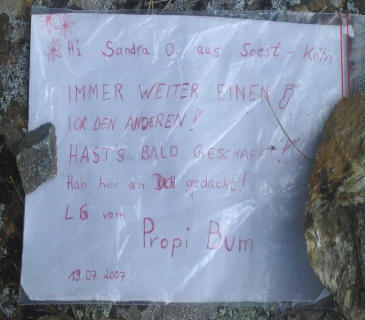 Hi Sandra O. aus Soest - Köln
IMMER WEITER EINEN
VOR DEN ANDEREN!
HAST'S BALD GESCHAFFT!
Hab hier an DICH gedacht!
LG vom
Propi Bum
19.07.2007